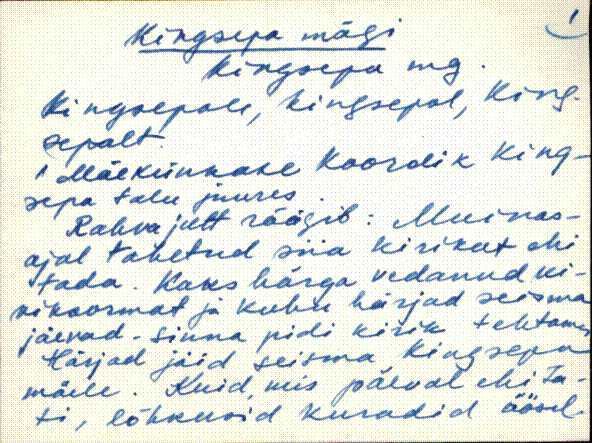 1
Kingsepa mägi
Kingsepa mg.
Kingsepale, kingsepal, King-
sepalt.
Mäekünkake Koordi k King-
sepa talu juures.
Rahvajutt räägib: Muinas-
ajal tahetud siia kirikut ehi
tada. Kaks härga vedanud ki-
vikoormat ja kuhu härjad seisma
jäevad - sinna pidi kirik tehtama
Härjad jäid seisma Kingsepa
mäele. Kuid, mis päeval ehita-
ti, lõhkusid kuradid öösel